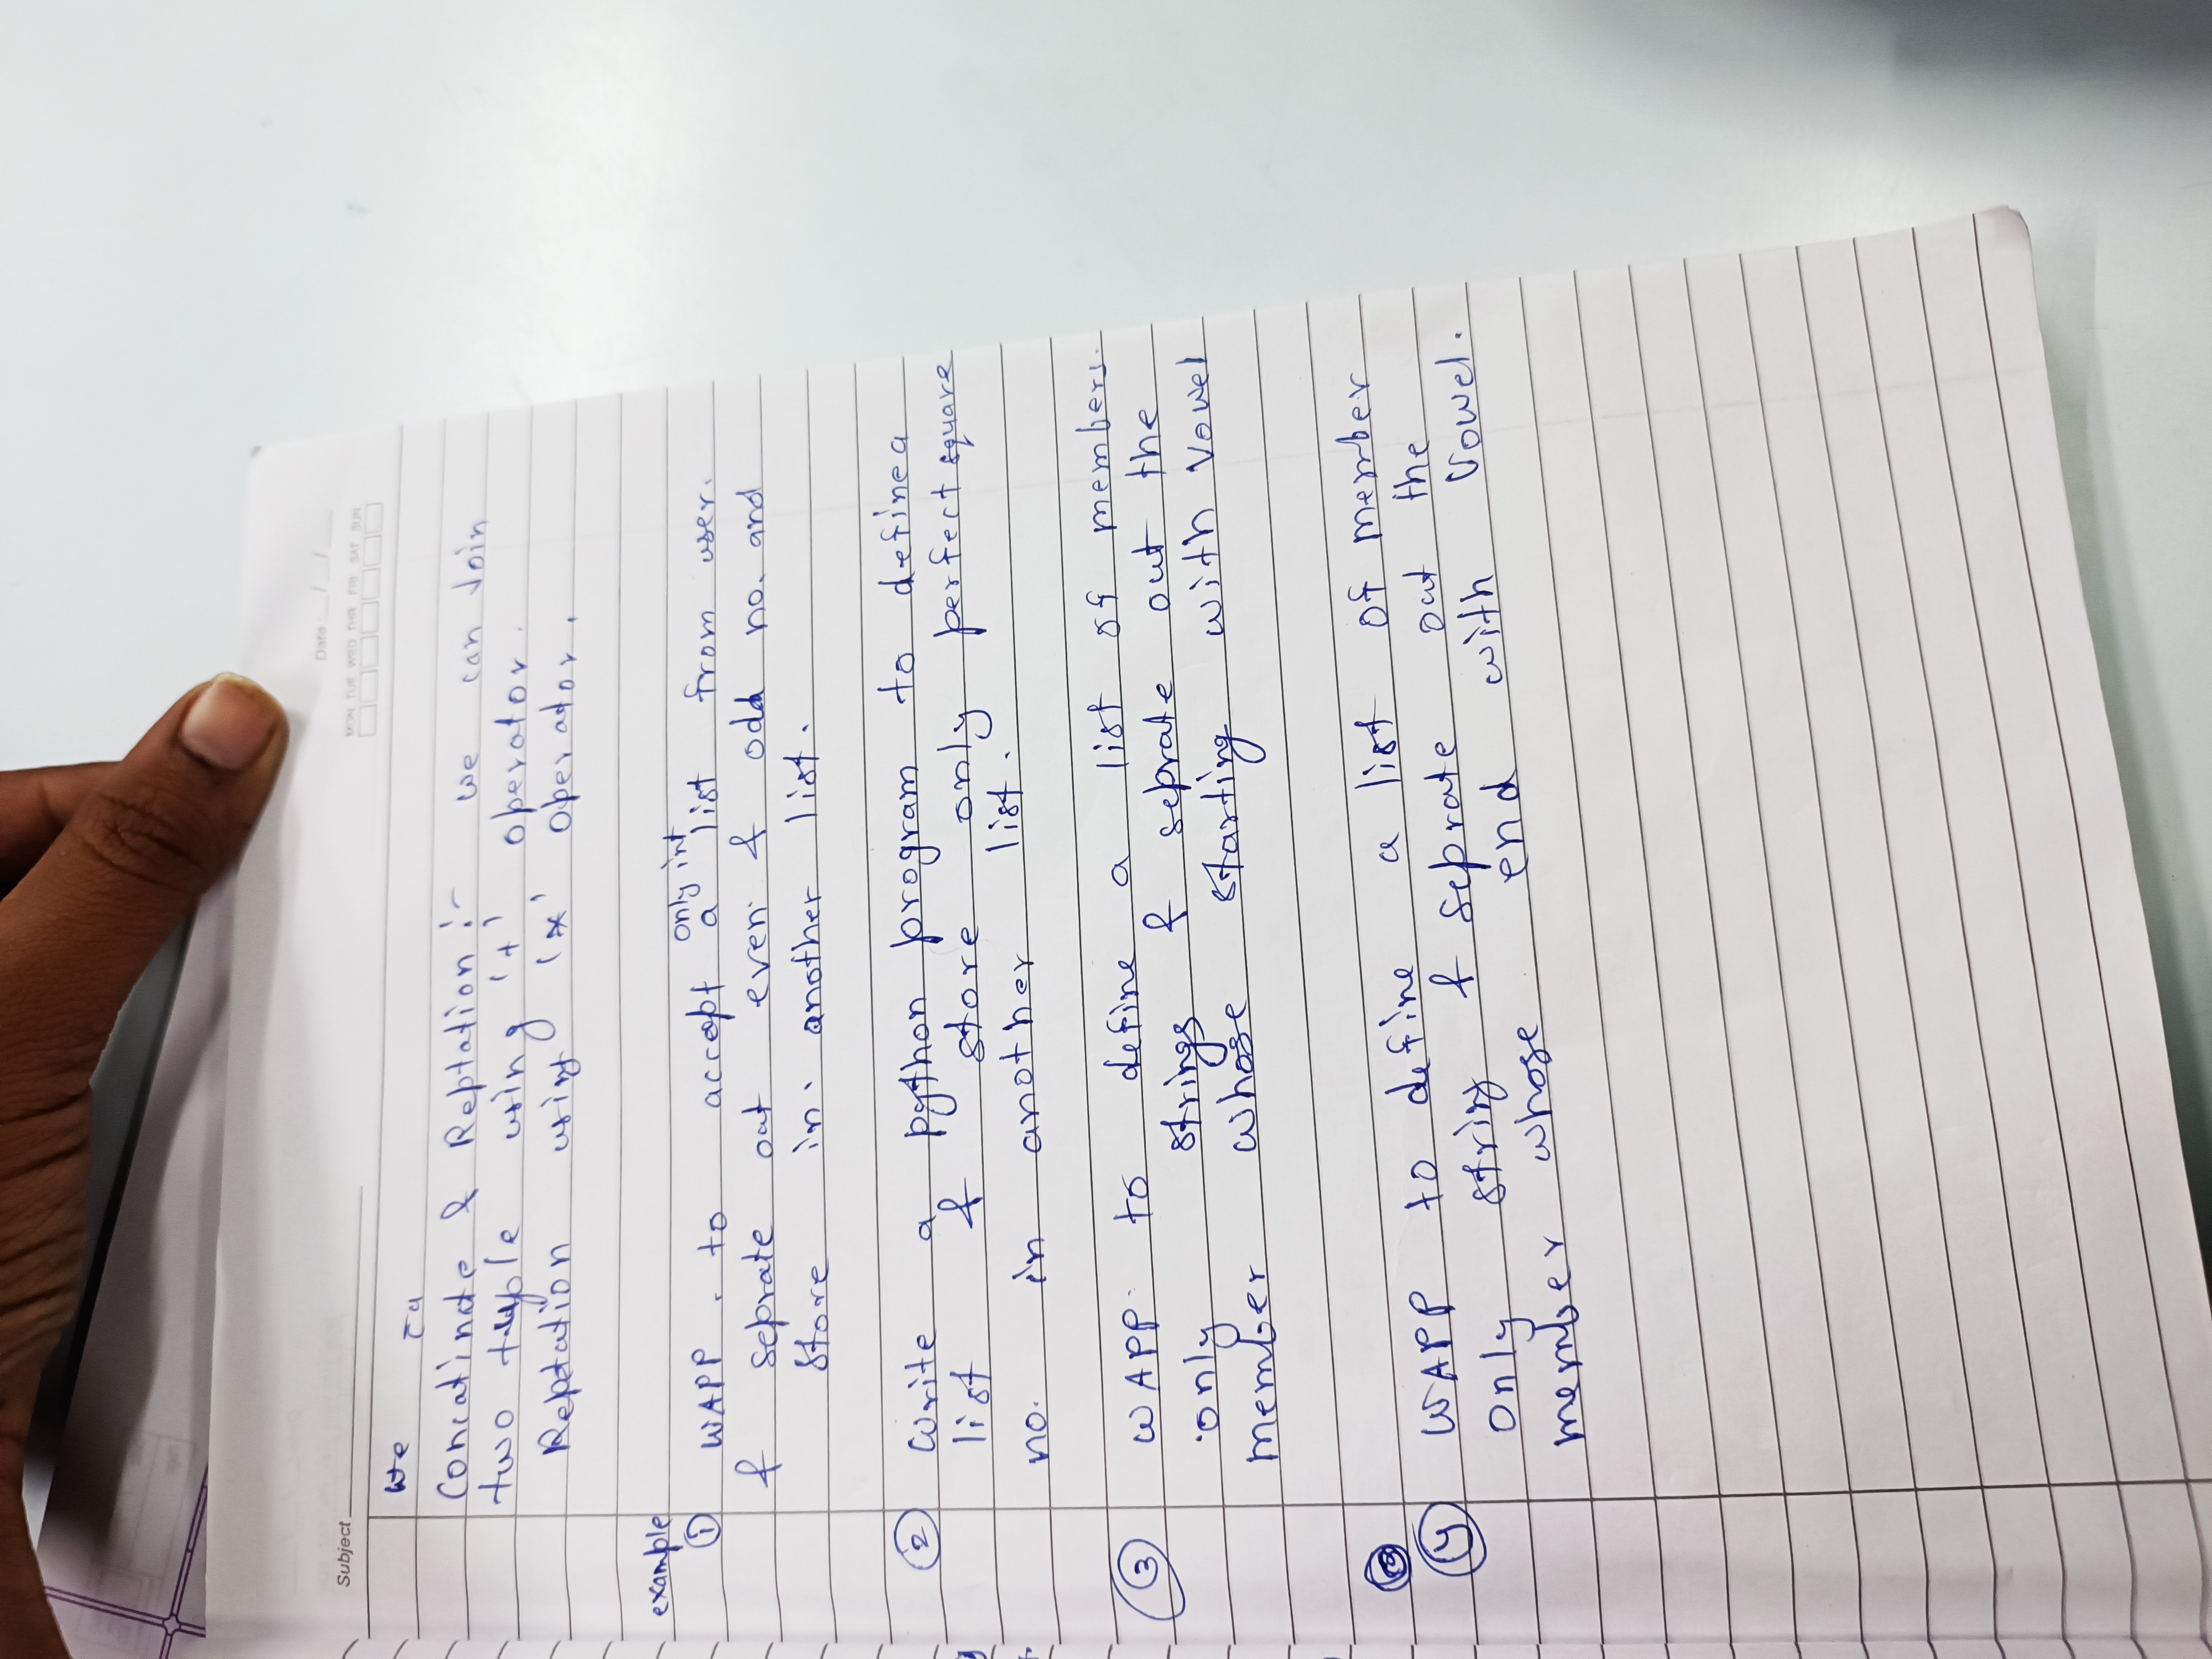 Subject
Date : / /
MON TUE WED THR FRI SAT SUN
we
Concatinate & Reptation :- we can Join
two tuple using '+' operator.
Reptation using '*' operator.
example
① WAPP. to accept a only int list from user.
& seprate out even & odd no. and
store in. another list.
② Write a python program to define a
list & store only perfect square
no. in another list.
③ WAPP. to define a list of members.
only strings & seprate out the
member whose starting with vowel
④ WAPP to define a list of member
only string & seprate out the
member whose end with vowel.